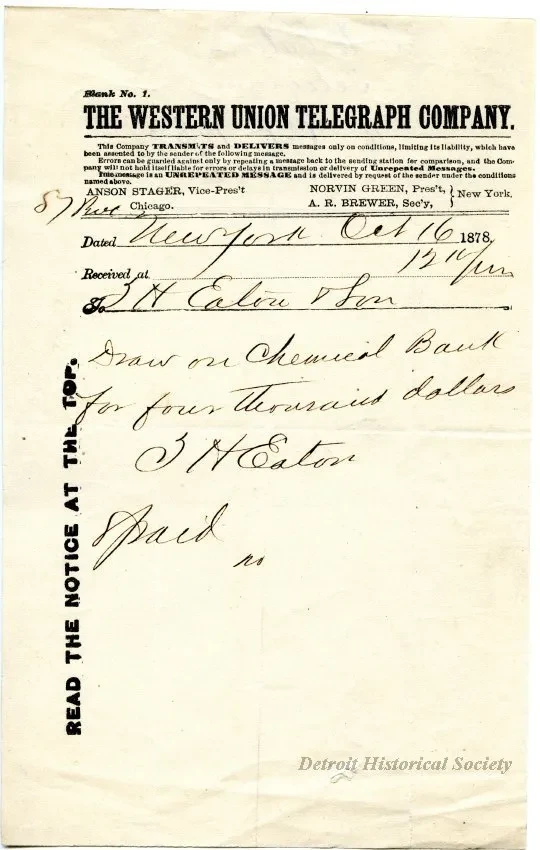 Blank No. 1.
THE WESTERN UNION TELEGRAPH COMPANY.
This Company TRANSMITS and DELIVERS messages only on conditions, limiting its liability, which have
been assented to by the sender of the following message.
Errors can be guarded against only by repeating a message back to the sending station for comparison, and the Com-
pany will not hold itself liable for errors or delays in transmission or delivery of Unrepeated Messages.
This message is an UNREPEATED MESSAGE and is delivered by request of the sender under the conditions
named above.
ANSON STAGER, Vice-Pres't NORVIN GREEN, Pres't, } New York.
Chicago. A. R. BREWER, Sec'y,
87
Dated New York Oct 16 1878
Received at 12
To T H Eaton & Son
Draw on Chemical Bank
for four thousand dollars
T H Eaton
8 paid
READ THE NOTICE AT THE TOP.
Detroit Historical Society